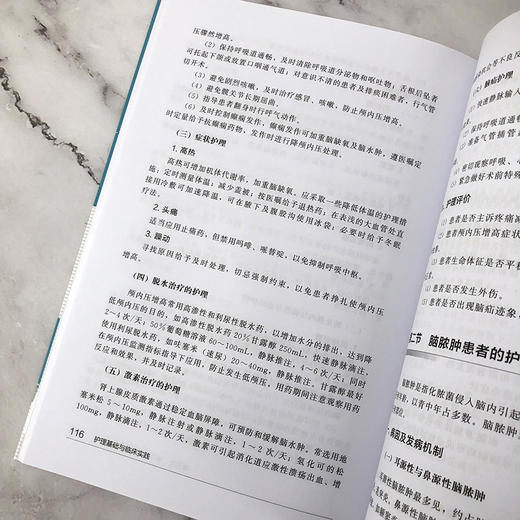 压骤然增高。
（2）保持呼吸道通畅，及时清除呼吸道分泌物和呕吐物；舌根后坠者
可托起下颌或放置口咽通气道；对意识不清的患者及排痰困难者，行气管
切开术。
（3）避免剧烈咳嗽，及时治疗感冒、咳嗽，防止颅内压增高。
（4）避免髋关节长期屈曲。
（5）指导患者翻身时行呼气动作。
（6）及时控制癫痫发作，癫痫发作可加重脑缺氧及脑水肿，遵医嘱定
时定量给予抗癫痫药物，发作时进行降颅内压处理。
（三）症状护理
1. 高热
高热可增加机体代谢率，加重脑缺氧，应采取一些降低体温的护理措
施：定时测量体温；减少盖被；按医嘱给予退热药；在表浅的大血管处直
接用冷敷可加速降温，可在腋下及腹股沟使用冰袋；必要时给予冬眠
疗法。
2. 头痛
适当应用止痛药，但禁用吗啡、哌替啶，以免抑制呼吸中枢。
3. 躁动
寻找原因给予及时处理，切忌强制约束，以免患者挣扎使颅内压
增高。
（四）脱水治疗的护理
颅内压增高常用高渗性和利尿性脱水药，以增加水分的排出，达到降
低颅内压的目的。如高渗性脱水药20%甘露醇250mL，快速静脉滴注，
2～4次/天；50%葡萄糖溶液60～100mL，静脉推注，4～6次/天；同时
使用利尿脱水药，如呋塞米（速尿）20～40mg，静脉推注。甘露醇最好
在颅内压监测指标指导下应用，防止发生低颅压，用药期间注意观察用药
反应和效果，并及时记录。
（五）激素治疗的护理
肾上腺皮质激素通过稳定血脑屏障，可预防和缓解脑水肿。常选用地
塞米松5～10mg，静脉注射或静脉滴注，1～2次/天；氢化可的松
100mg，静脉滴注，1～2次/天，激素可引起消化道应激性溃疡出血、增
116
护理基础与临床实践
（2）脑疝护理
快速静脉输入
保持呼吸道通
准备气管插管
密切观察呼吸、
紧急做好术前特殊
护理评价
患者是否主诉疼痛
颅内压增高症状
患者生命体征是否平
患者是否发生外伤。
患者是否出现脑疝迹象，
二节 脑脓肿患者的护
脑脓肿是指化脓菌侵入脑内引起
，以青中年占多数。脑脓肿
病因及发病机制
（一）耳源性与鼻源性脑脓肿
耳源性脑脓肿最多见，约占